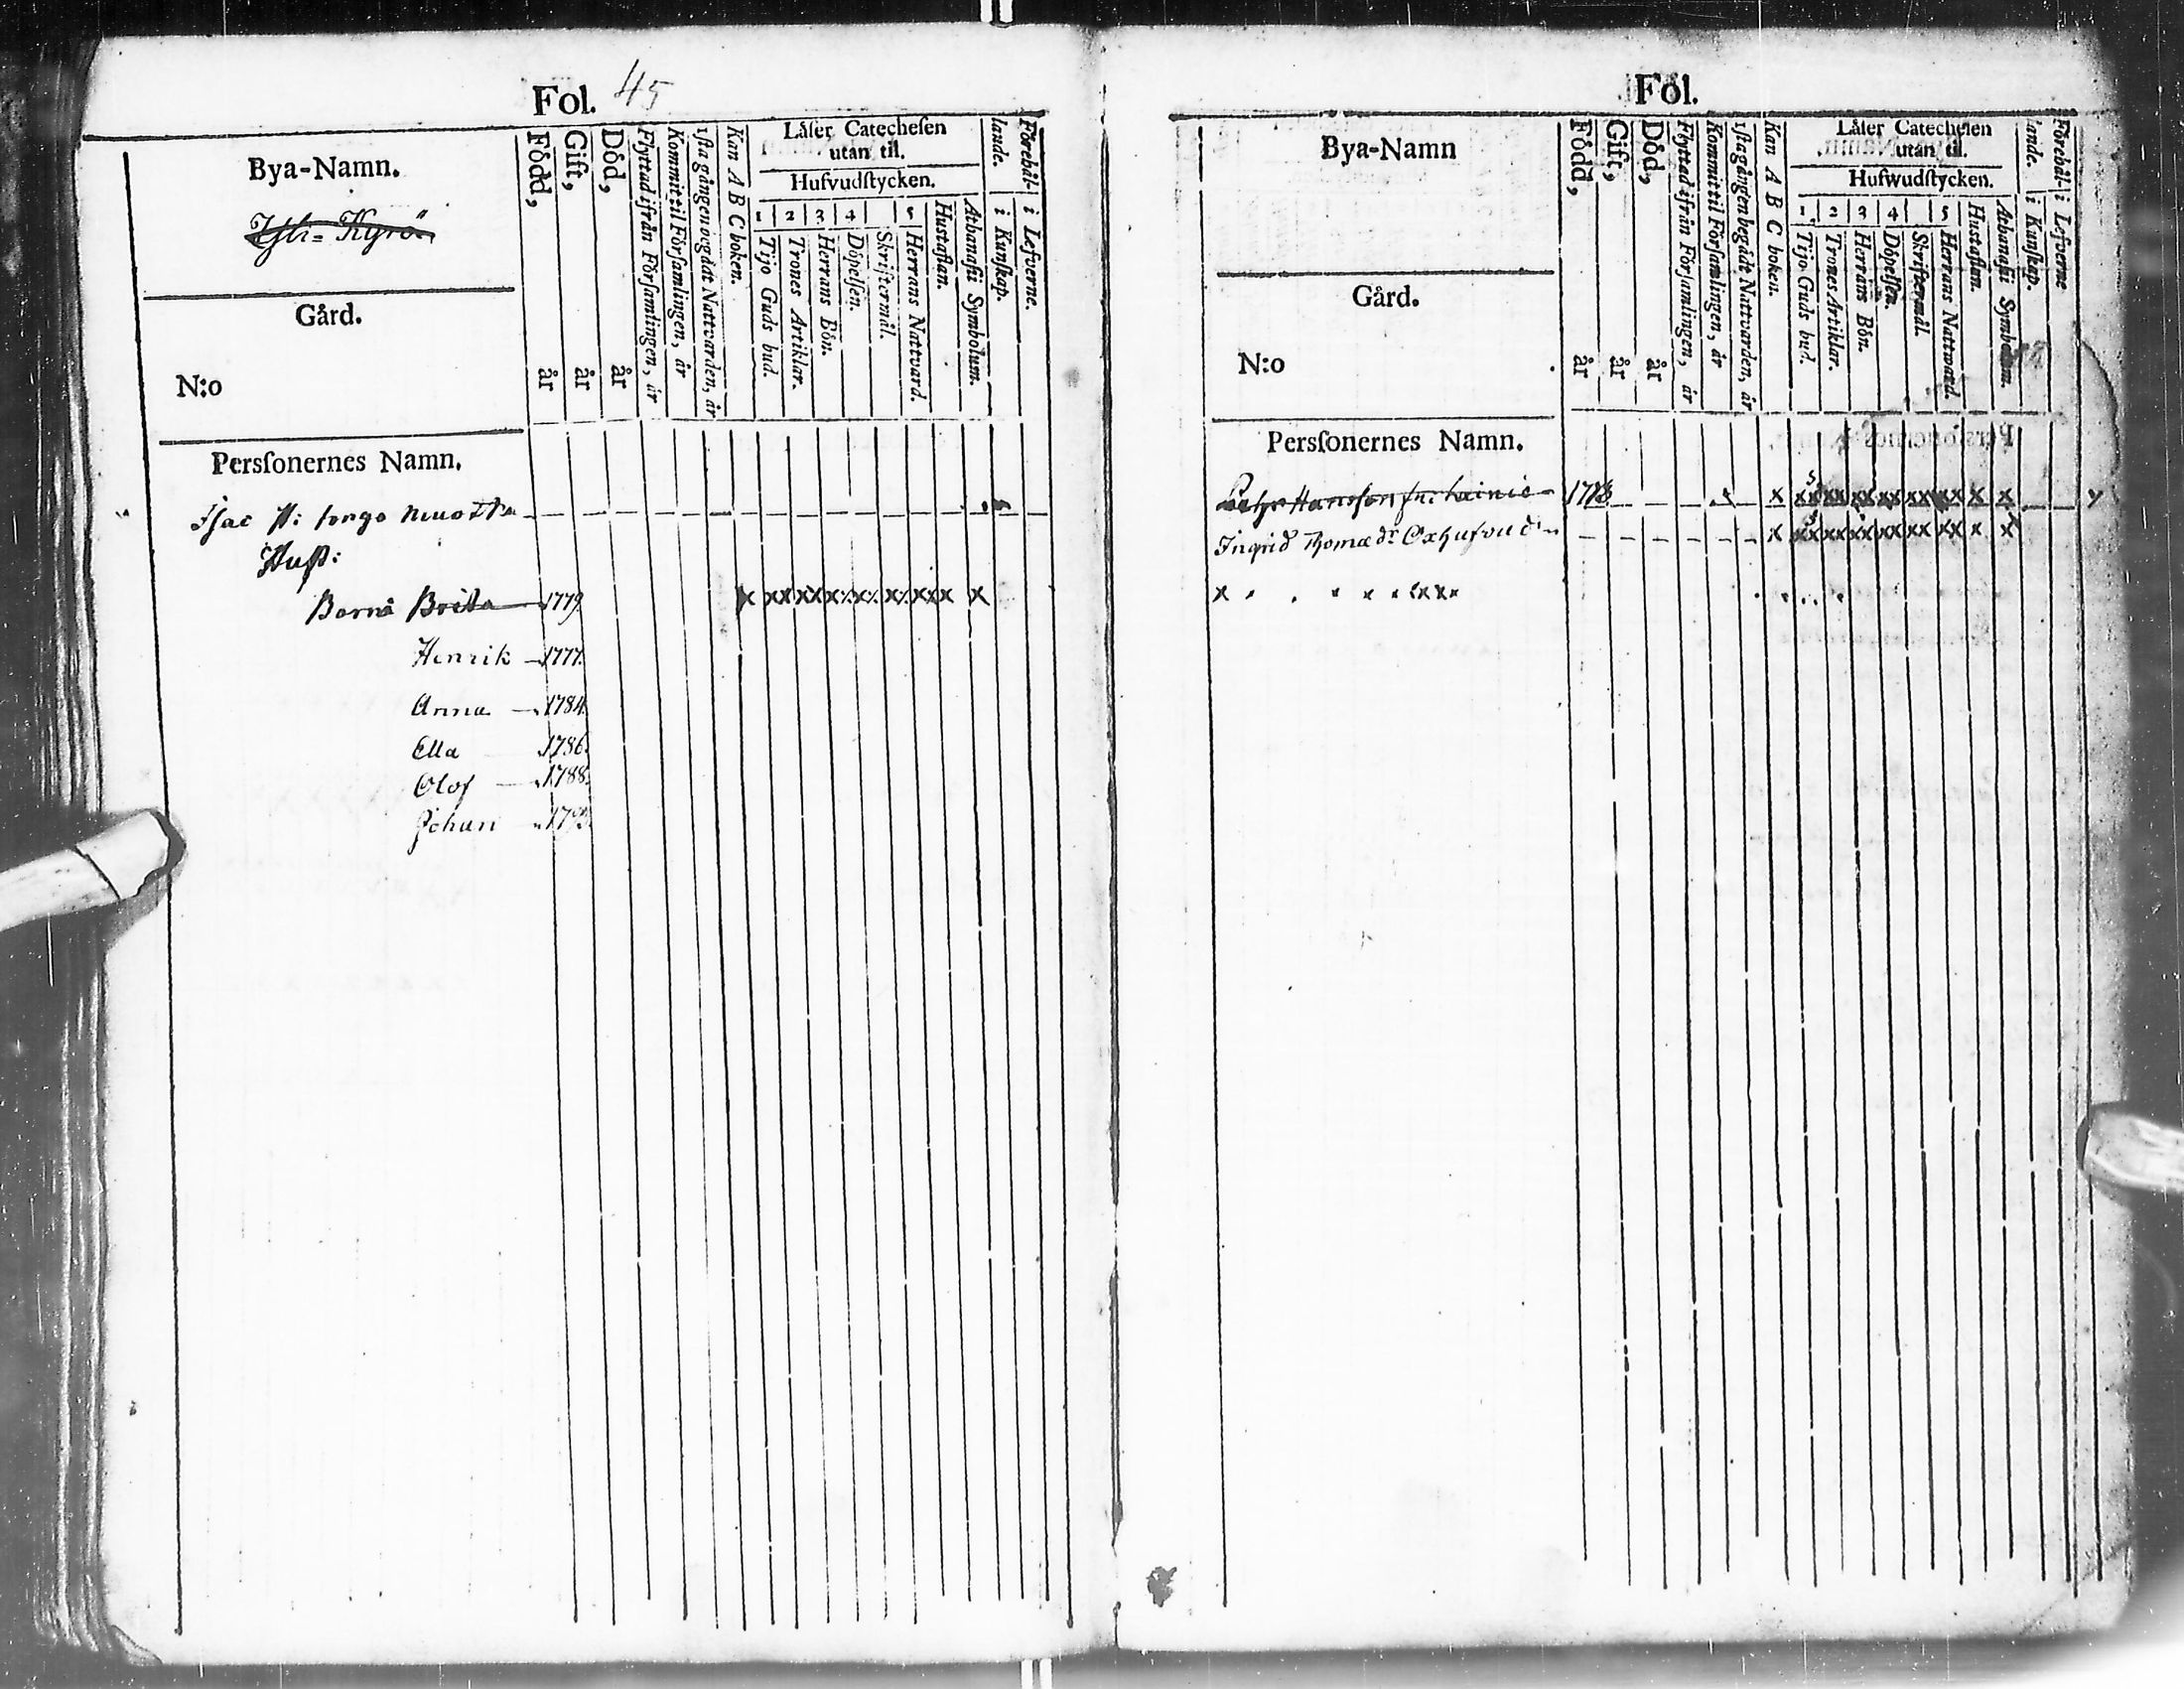 Fol. 45
Bya-Namn.
Kyrö
Gård.
N:o
Född, år
Gift, år
Död, år
Flyttad ifrån Församlingen, år
Kommit til Församlingen, år
1sta gången begådt Nattvarden, år
Kan A B C boken.
Låser Catechesen
utan til.
Hufvudstycken.
1 2 3 4 5
Tijo Guds bud.
Trones Artiklar.
Herrans Bön.
Döpelsen.
Skriftermål.
Herrans Nattvard.
Hustaflan.
Athanasii Symbolum.
Förehål-
lande.
i Kunskap.
i Lefverne.
Perssonernes Namn.
Isac
Hust:
Barn Brita 1779 x xx xx x x x xxx x
Henrik 1777.
Anna 1784.
Ella 1786.
Olof 1788.
Johan
Fol.
Bya-Namn
Gård.
N:o
Född, år
Gift, år
Död, år
Flyttad ifrån Församlingen, år
Kommit til Församlingen, år
1sta gången begådt Nattvarden, år
Kan A B C boken.
Låser Catechesen
utan til.
Hufwudstycken.
1 2 3 4 5
Tijo Guds bud.
Trones Artiklar.
Herrans Bön.
Döpelsen.
Skriftermål.
Herrans Nattward.
Hustaflan.
Athanasii Symbolum.
Förehål-
lande.
i Kunskap.
i Lefverne
Perssonernes Namn.
Pehr Hansson x xx xx xx xx xx xx x x
Ingrid Thomædr Oxhufvud x xx xx xx xx xx xx x x